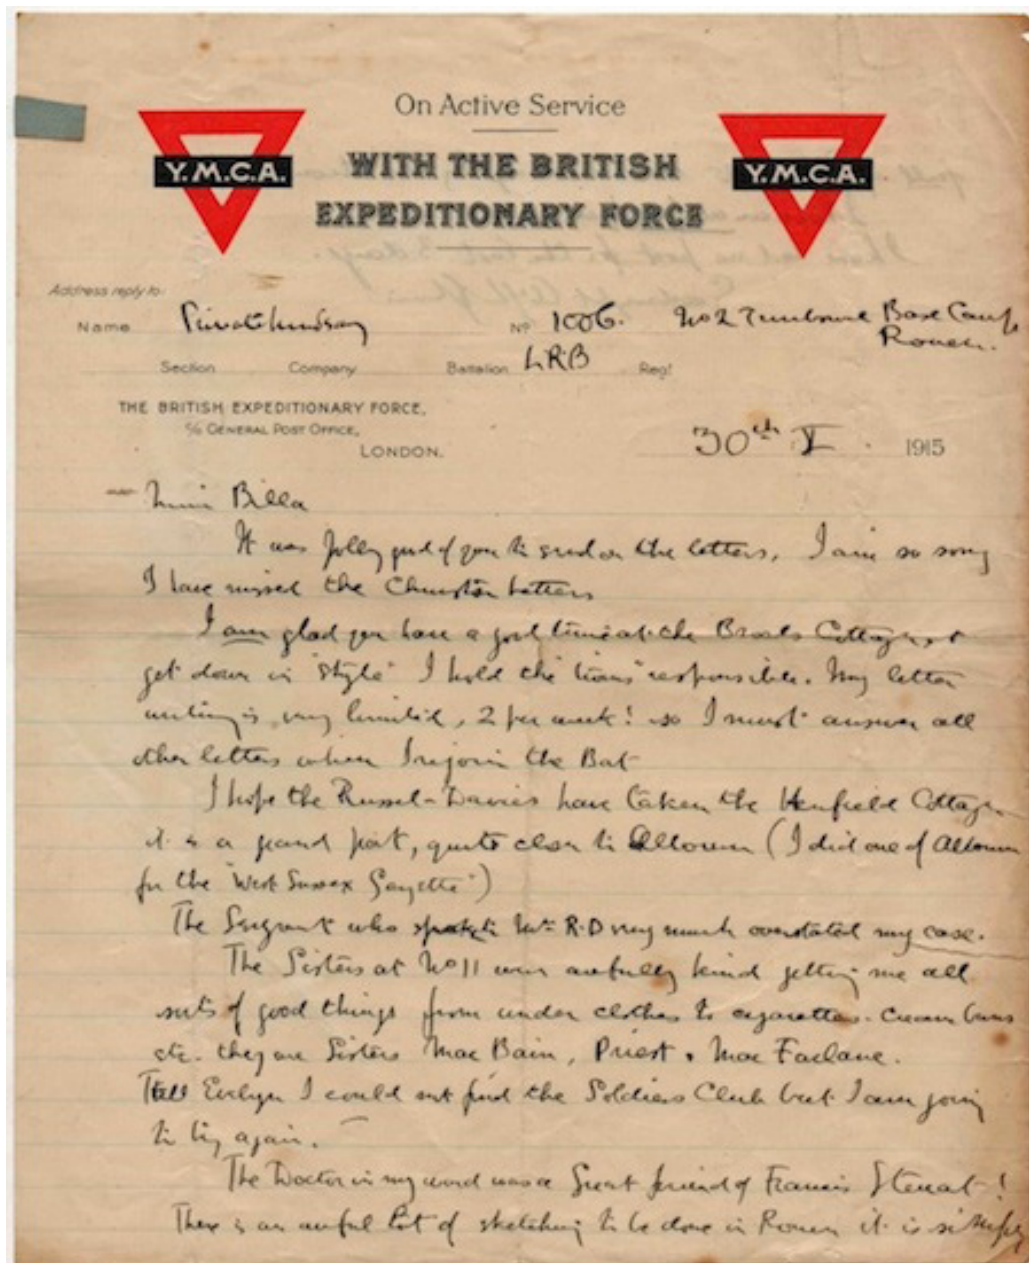 On Active Service
Y.M.C.A.
WITH THE BRITISH
EXPEDITIONARY FORCE
Y.M.C.A.
Address reply to:
Name Private Lindsay No 1006. No 2 Base Camp
Rouen.
Section Company Battalion LRB Regt
THE BRITISH EXPEDITIONARY FORCE,
c/o GENERAL POST OFFICE,
LONDON.
30th V. 1915
Billa
It was jolly good of you to send on the letters. I am so sorry
I have missed the letters
I am glad you have a good time at the Cottage, &
get down in "style" I hold the responsible. My letter
writing is very limited, 2 per week! so I must answer all
other letters when I rejoin the Bat
I hope the Russel-Davies have taken the Henfield Cottage
it is a grand part, quite close to (I did one of
for the "West Sussex Gazette")
The Sergeant who Mrs R.D very much overstated my case.
The Sisters at No 11 were awfully kind getting me all
sorts of good things from under clothes to cigarettes. cream buns
etc. they are Sisters Mac Bain, Priest & Mac Farlane.
Tell Evelyn I could not find the Soldiers Club but I am going
to try again.
The Doctor in my word was a Great friend of Francis Steuat!
There is an awful lot of sketching to be done in Rouen it is simply